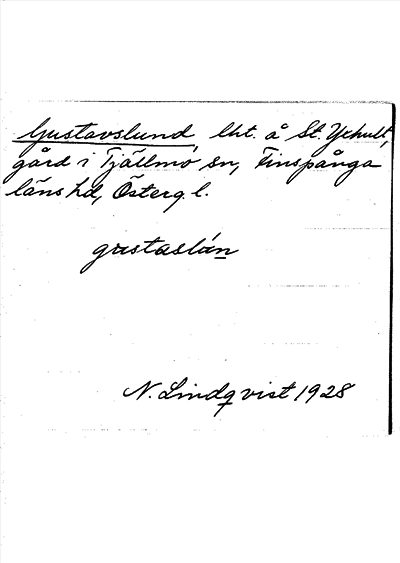 Gustavslund, lht. å St. Ychult,
gård i Tjällmo sn, Finspånga
läns hd, Österg. l.
gustaslún
N. Lindqvist 1928